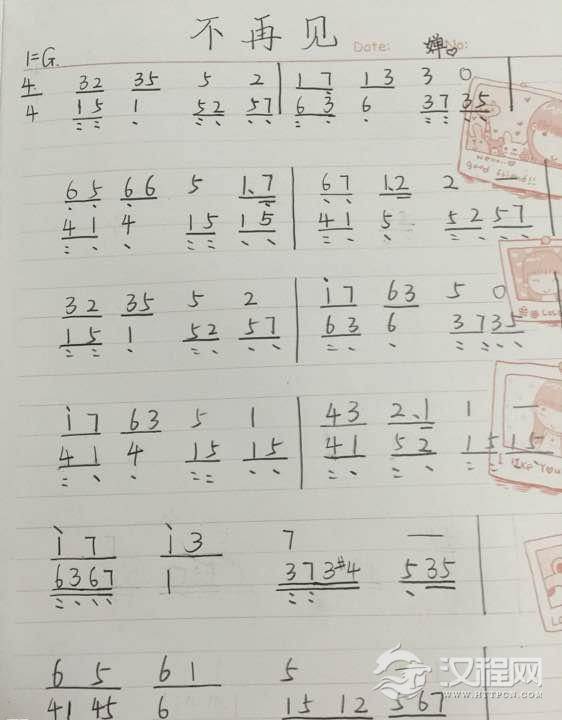 不再见
Date: No:
1=G
4/4 32 35 5 2 | 17 13 3 0 |
15 1 52 57 63 6 37 35
65 66 5 1.7 | 67 1.2 2
41 4 15 15 41 5 52 57
32 35 5 2 | i7 63 5 0
15 1 52 57 63 6 3735
i7 63 5 1 | 43 2.1 1 —
41 4 15 15 41 52 15 15
i7 i3 7 — |
6367 1 373#4 535
65 61 5 — |
41 45 6 15 12 567
汉程网
HTTPCN.COM